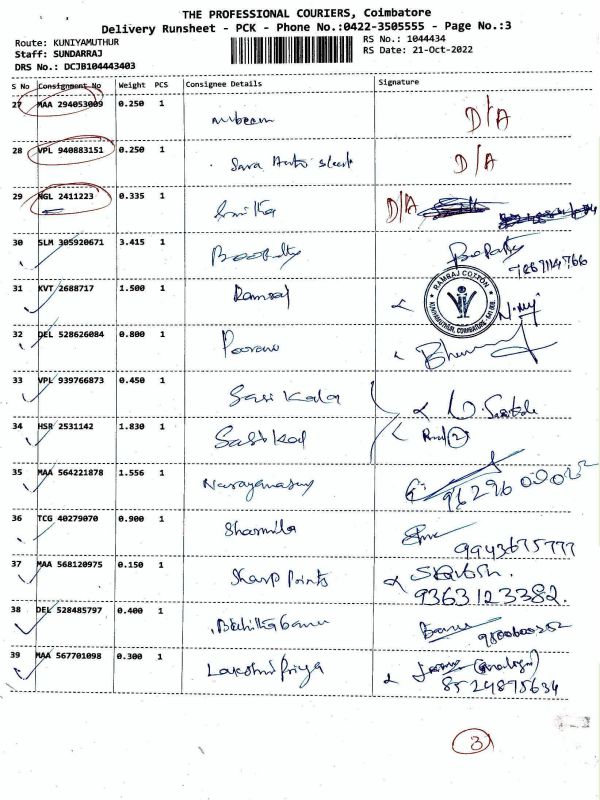 THE PROFESSIONAL COURIERS, Coimbatore
Delivery Runsheet - PCK - Phone No.:0422-3505555 - Page No.:3
Route: KUNIYAMUTHUR RS No.: 1044434
Staff: SUNDARRAJ RS Date: 21-Oct-2022
DRS No.: DCJB104443403
S No Consignment No Weight PCS Consignee Details Signature
27 MAA 294053009 0.250 1 D/A
28 VPL 940883151 0.250 1 Sara Auto D/A
29 NGL 2411223 0.335 1 Smitha D/A
30 SLM 305920671 3.415 1 Boopathy
31 KVT 2688717 1.500 1 Ramraj RAMRAJ COTTON KUNIYAMUTHUR, COIMBATORE
32 DEL 528626084 0.800 1
33 VPL 939766873 0.450 1 Sasi Kala
34 HSR 2531142 1.830 1 Sasi Kal (2)
35 MAA 564221878 1.556 1 Narayanasamy
36 TCG 40279070 0.900 1 Sharmila
37 MAA 568120975 0.150 1 Sharp Points
9363123382.
38 DEL 528485797 0.400 1
39 MAA 567701098 0.300 1 Lakshmi Priya
8524875634
3